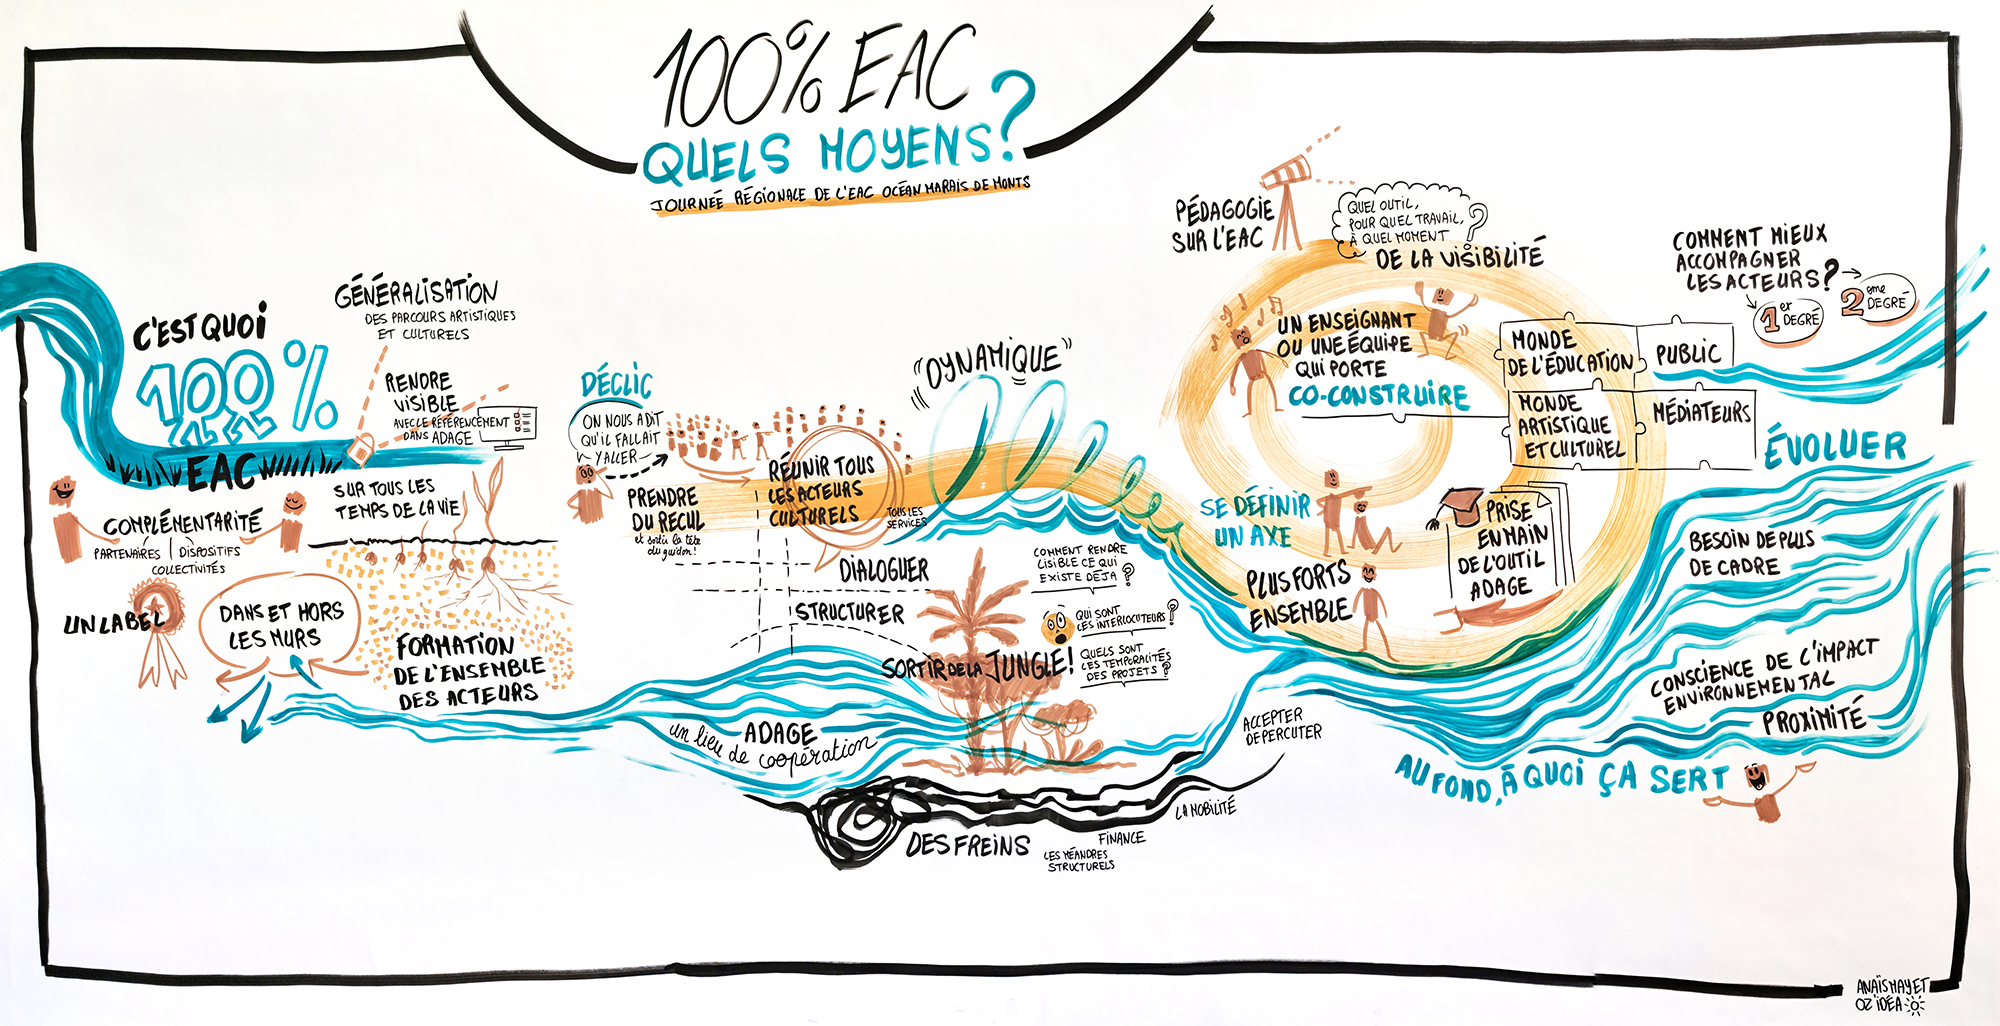 100% EAC
QUELS MOYENS?
JOURNÉE RÉGIONALE DE L'EAC OCÉAN MARAIS DE MONTS
C'EST QUOI
100%
EAC
GÉNÉRALISATION
DES PARCOURS ARTISTIQUES
ET CULTURELS
RENDRE
VISIBLE
AVEC LE RÉFÉRENCEMENT
DANS ADAGE
COMPLÉMENTARITÉ
PARTENAIRES | DISPOSITIFS
COLLECTIVITÉS
SUR TOUS LES
TEMPS DE LA VIE
UN LABEL
DANS ET HORS
LES MURS
FORMATION
DE L'ENSEMBLE
DES ACTEURS
DÉCLIC
ON NOUS A DIT
QU'IL FALLAIT
Y ALLER
PRENDRE
DU RECUL
et sortir la tête
du guidon!
RÉUNIR TOUS
LES ACTEURS
CULTURELS
TOUS LES
SERVICES
DIALOGUER
STRUCTURER
SORTIR DE LA JUNGLE!
"DYNAMIQUE"
COMMENT RENDRE
LISIBLE CE QUI
EXISTE DÉJÀ ?
QUI SONT
LES INTERLOCUTEURS ?
QUELS SONT
LES TEMPORALITÉS
DES PROJETS ?
ADAGE
un lieu de coopération
DES FREINS
LES MÉANDRES
STRUCTURELS
FINANCE
LA MOBILITÉ
ACCEPTER
DE PERCUTER
PÉDAGOGIE
SUR L'EAC
QUEL OUTIL,
POUR QUEL TRAVAIL,
À QUEL MOMENT ?
DE LA VISIBILITÉ
UN ENSEIGNANT
OU UNE ÉQUIPE
QUI PORTE
CO-CONSTRUIRE
MONDE
DE L'ÉDUCATION
PUBLIC
MONDE
ARTISTIQUE
ET CULTUREL
MÉDIATEURS
SE DÉFINIR
UN AXE
PLUS FORTS
ENSEMBLE
PRISE
EN MAIN
DE L'OUTIL
ADAGE
COMMENT MIEUX
ACCOMPAGNER
LES ACTEURS?
1er DEGRÉ
2eme DEGRÉ
ÉVOLUER
BESOIN DE PLUS
DE CADRE
CONSCIENCE DE L'IMPACT
ENVIRONNEMENTAL
PROXIMITÉ
AU FOND, À QUOI ÇA SERT
ANAÏS MAYET
OZ'IDEA